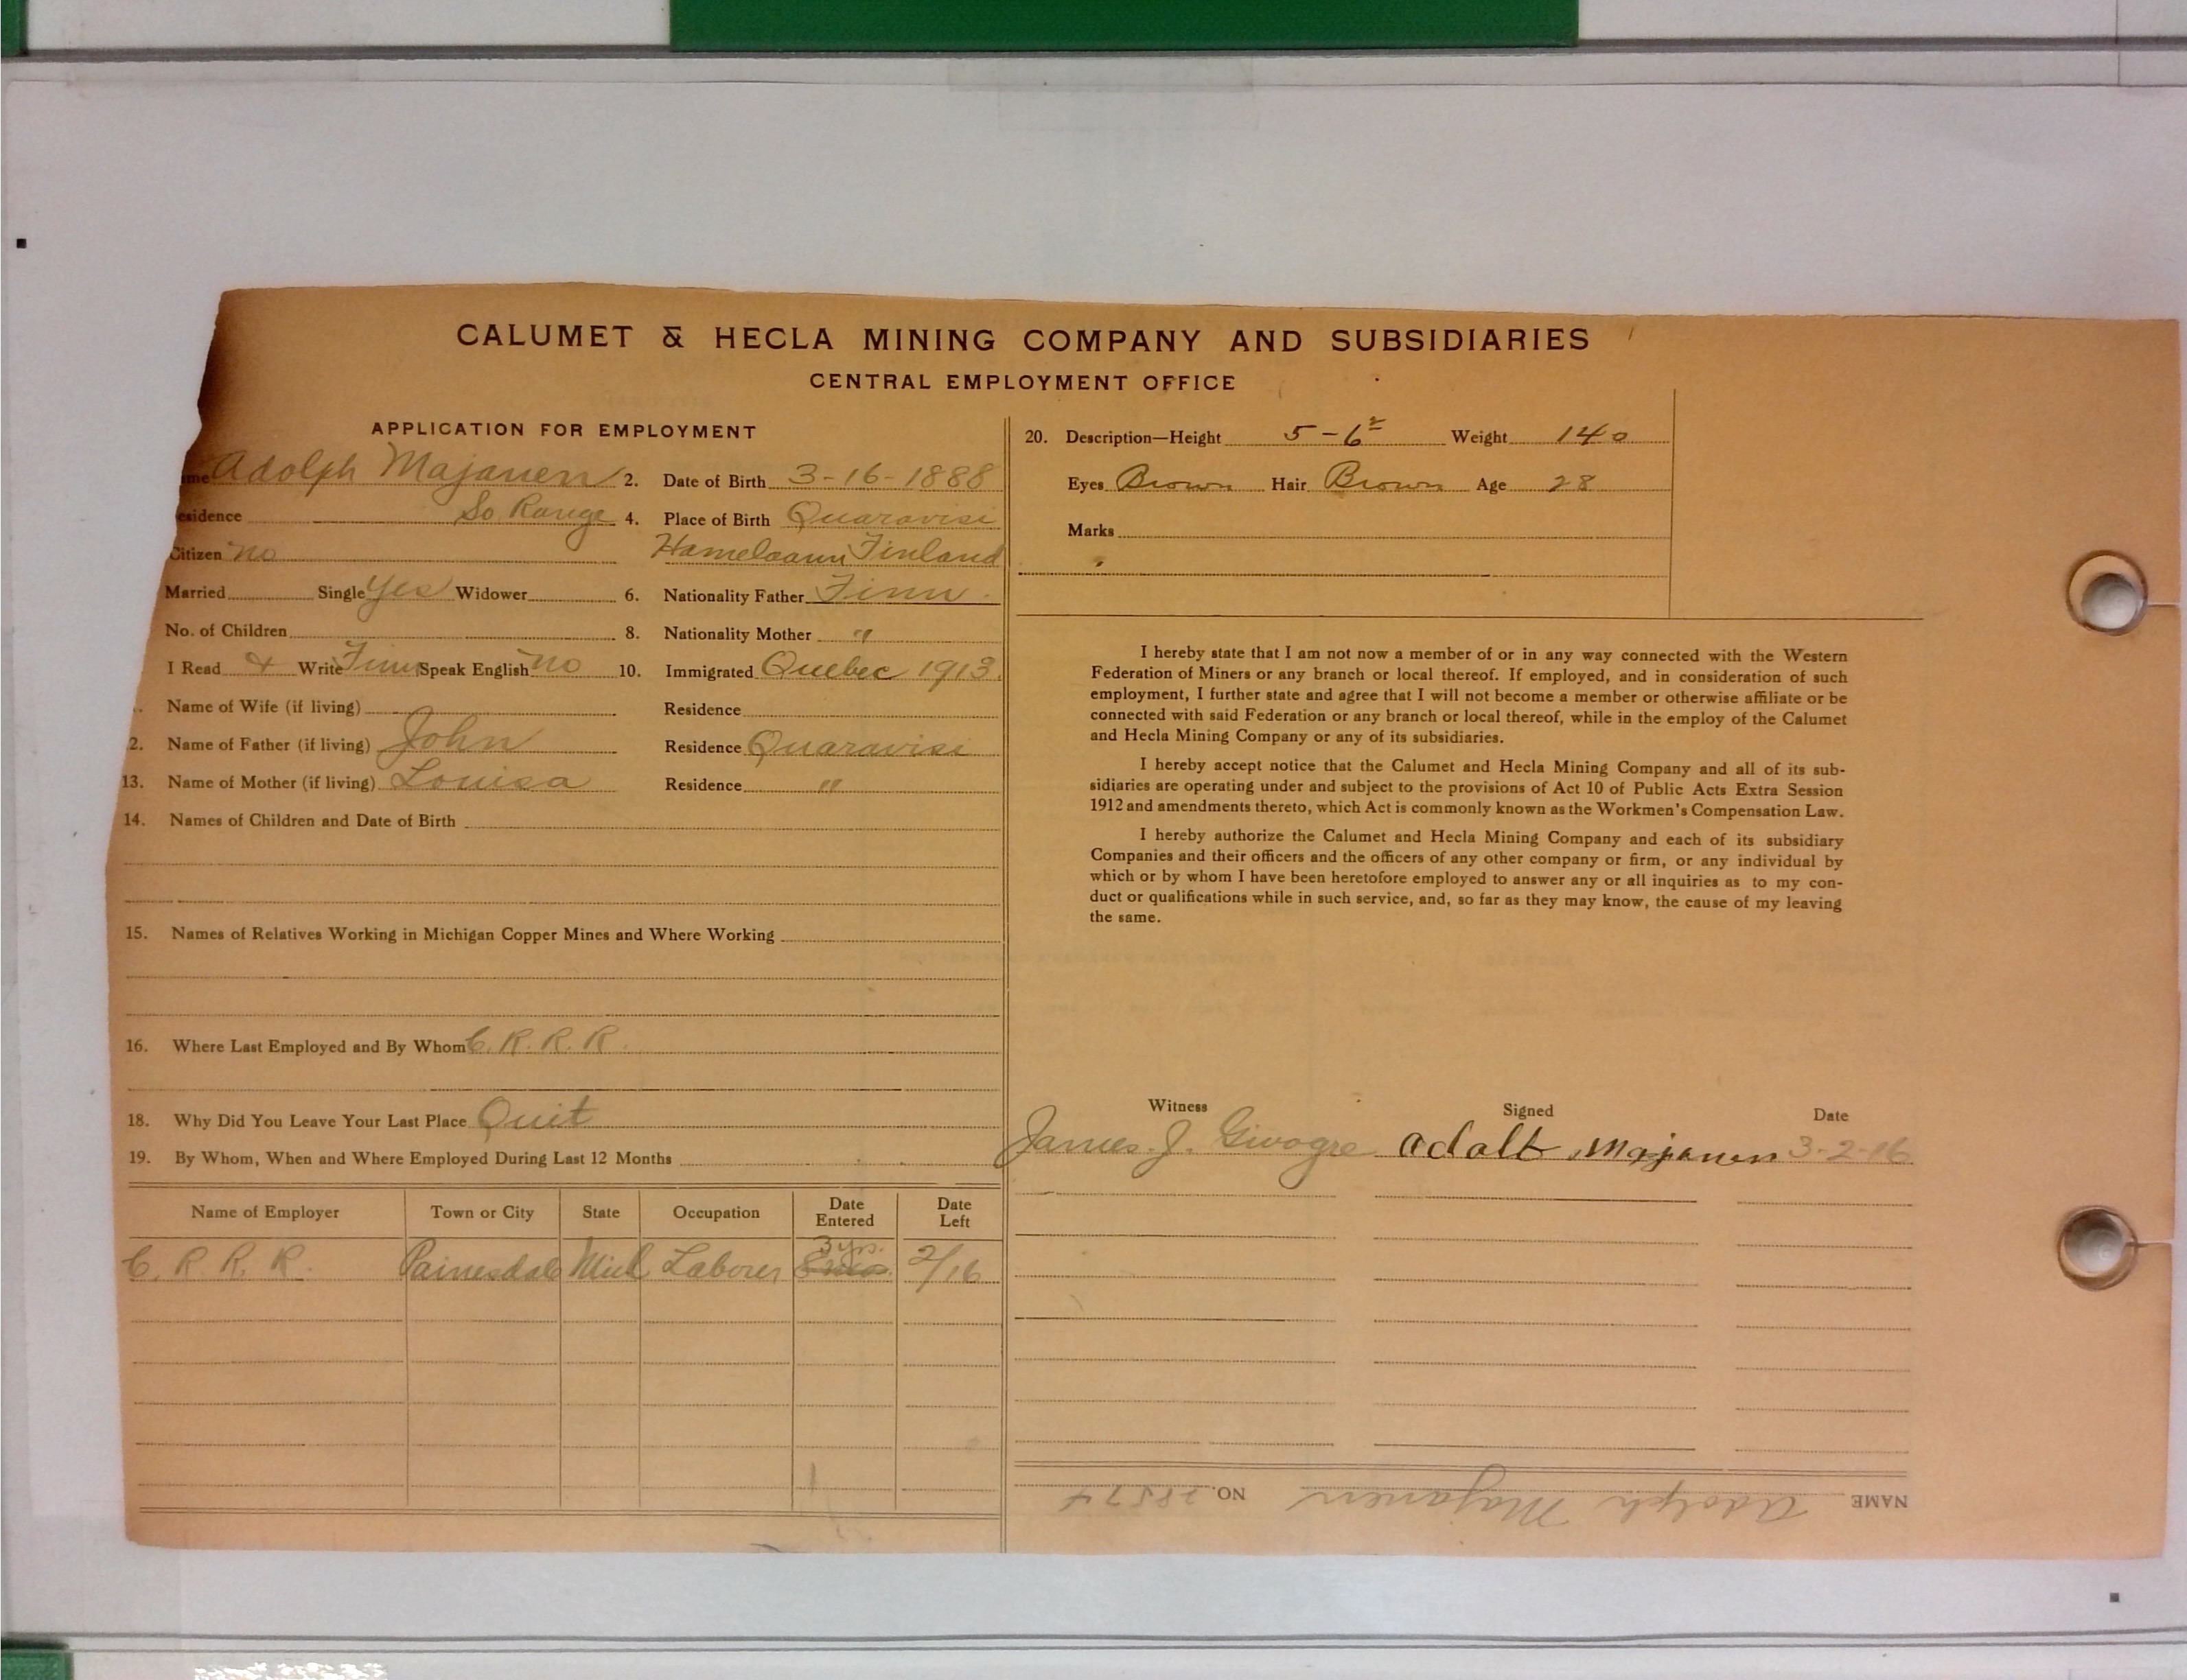 CALUMET & HECLA MINING COMPANY AND SUBSIDIARIES
CENTRAL EMPLOYMENT OFFICE
APPLICATION FOR EMPLOYMENT
me Adolph Majanen 2. Date of Birth 3-16-1888
esidence So. Range 4. Place of Birth Quaravisi
Citizen no Finland
Married Single Yes Widower 6. Nationality Father Finn
No. of Children 8. Nationality Mother "
I Read & Write Finn Speak English no 10. Immigrated Quebec 1913
Name of Wife (if living) Residence
2. Name of Father (if living) John Residence Quaravisi
13. Name of Mother (if living) Louisa Residence "
14. Names of Children and Date of Birth
15. Names of Relatives Working in Michigan Copper Mines and Where Working
16. Where Last Employed and By Whom C. R. R. R.
18. Why Did You Leave Your Last Place Quit
19. By Whom, When and Where Employed During Last 12 Months
Name of Employer Town or City State Occupation Date Entered Date Left
C. R. R. R. Painesdale Mich Laborer 3 yrs. 2/16
20. Description—Height 5-6½ Weight 140
Eyes Brown Hair Brown Age 28
Marks
I hereby state that I am not now a member of or in any way connected with the Western
Federation of Miners or any branch or local thereof. If employed, and in consideration of such
employment, I further state and agree that I will not become a member or otherwise affiliate or be
connected with said Federation or any branch or local thereof, while in the employ of the Calumet
and Hecla Mining Company or any of its subsidiaries.
I hereby accept notice that the Calumet and Hecla Mining Company and all of its sub-
sidiaries are operating under and subject to the provisions of Act 10 of Public Acts Extra Session
1912 and amendments thereto, which Act is commonly known as the Workmen's Compensation Law.
I hereby authorize the Calumet and Hecla Mining Company and each of its subsidiary
Companies and their officers and the officers of any other company or firm, or any individual by
which or by whom I have been heretofore employed to answer any or all inquiries as to my con-
duct or qualifications while in such service, and, so far as they may know, the cause of my leaving
the same.
Witness Signed Date
James J. adolt Majanen 3-2-16
NAME Adolph Majanen NO. 28574